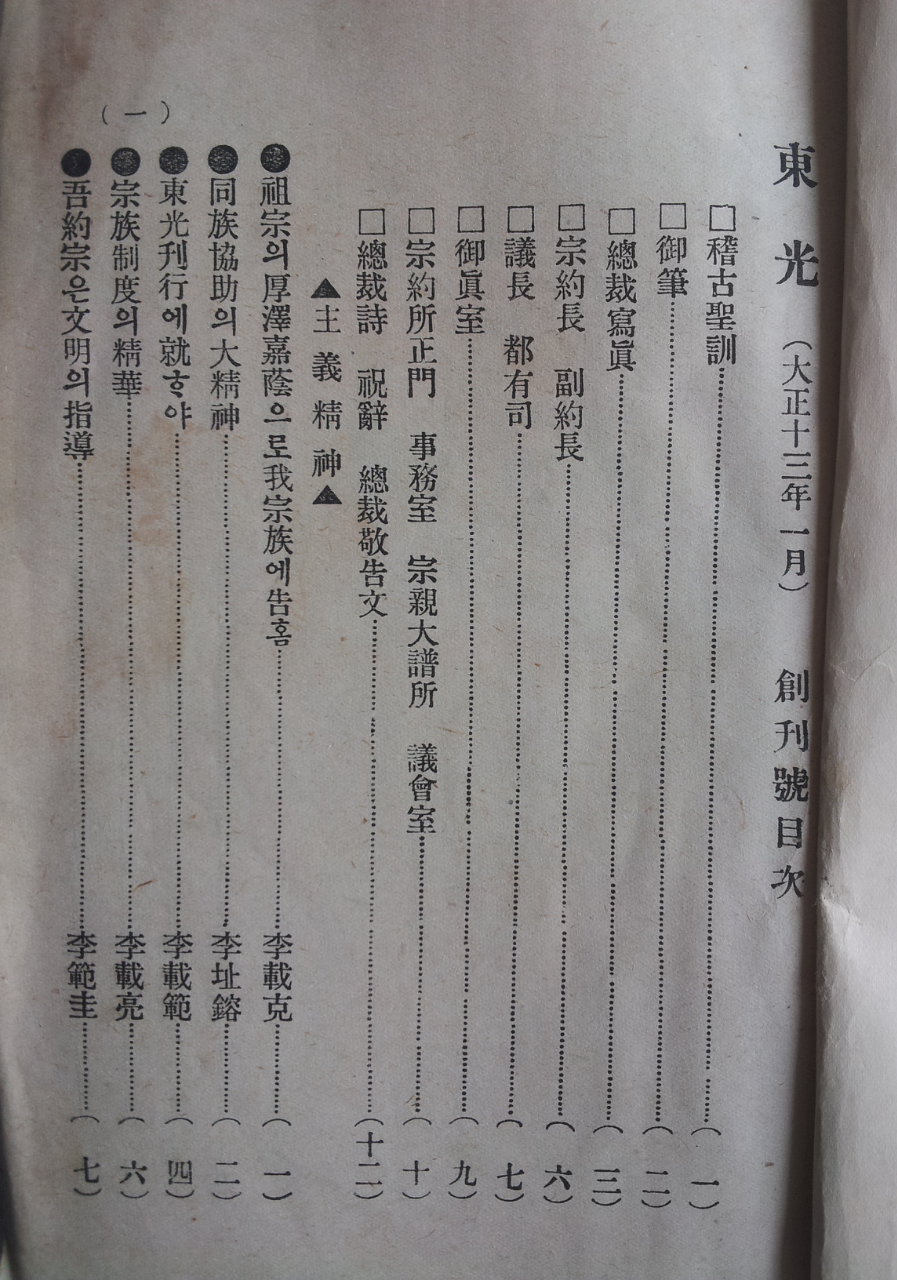 東光 (大正十三年一月) 創刊號目次
□稽古聖訓……(一)
□御筆……(二)
□總裁寫眞……(三)
□宗約長 副約長……(六)
□議長 都有司……(七)
□御眞室……(九)
□宗約所正門 事務室 宗親大譜所 議會室……(十)
□總裁詩 祝辭 總裁敬告文……(十二)
▲主義精神▲
●祖宗의厚澤嘉蔭으로我宗族에告홈……李載克……(一)
●同族協助의大精神……李址鎔……(二)
●東光刊行에就ᄒᆞ야……李載範……(四)
●宗族制度의精華……李載亮……(六)
●吾約宗은文明의指導……李範圭……(七)
(一)